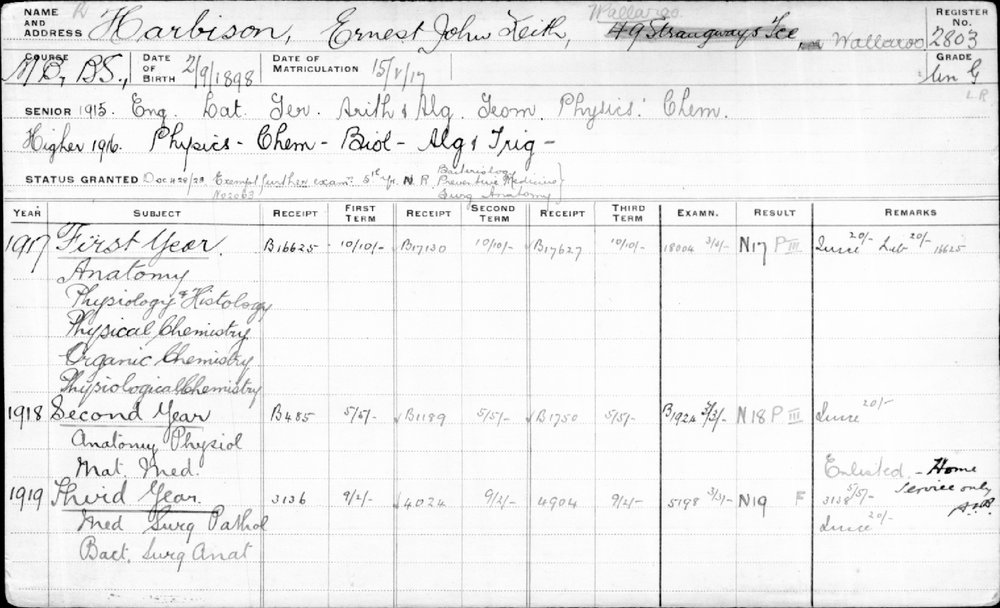 NAME AND ADDRESS Harbison, Ernest John Keith, Wallaroo 49 Strangways Tce Wallaroo REGISTER No. 2803
COURSE M.B., B.S., DATE OF BIRTH 2/9/1898 DATE OF MATRICULATION 15/V/17 GRADE Un G
LR
SENIOR 1915. Eng. Lat. Ger. Arith & Alg. Geom. Physics. Chem.
Higher 1916. Physics - Chem - Biol - Alg & Trig -
STATUS GRANTED Doc 428/23 Exempt further exam 5th yr. N.R. Bacteriology
No 2063 Preventive Medicine
Surg Anatomy
YEAR SUBJECT RECEIPT FIRST TERM RECEIPT SECOND TERM RECEIPT THIRD TERM EXAMN. RESULT REMARKS
1917 First Year. B16625 10/10/- B17130 10/10/- B17627 10/10/- 18004 3/3/- N17 P III 20/- Lib 20/- 16625
Anatomy
Physiology & Histology
Physical Chemistry
Organic Chemistry
Physiological Chemistry
1918 Second Year B485 5/5/- B1189 5/5/- B1750 5/5/- B1924 3/3/- N18 P III 20/-
Anatomy Physiol
Mat. Med. Enlisted - Home
1919 Third Year. 3136 9/2/- 4024 9/2/- 4904 9/2/- 5198 3/3/- N19 F 3138 5/5/- Service only
Med Surg Pathol 20/-
Bact. Surg Anat